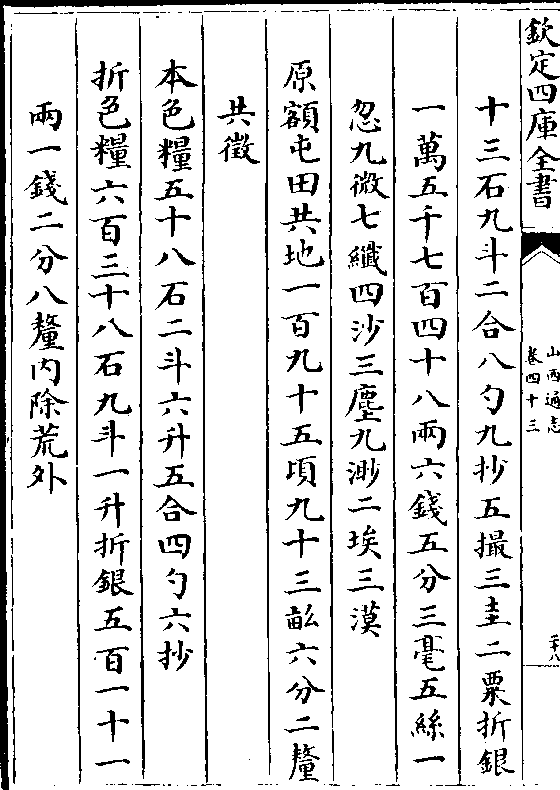 欽定四庫全書
山西通志
卷四十三
二十八
十三石九斗二合八勺九抄五撮三圭二粟折銀
一萬五千七百四十八兩六錢五分三毫五絲一
忽九微七纖四沙三塵九渺二埃三漠
原額屯田共地一百九十五頃九十三畝六分二釐
共徵
本色糧五十八石二斗六升五合四勺六抄
折色糧六百三十八石九斗一升折銀五百一十一
兩一錢二分八釐內除荒外